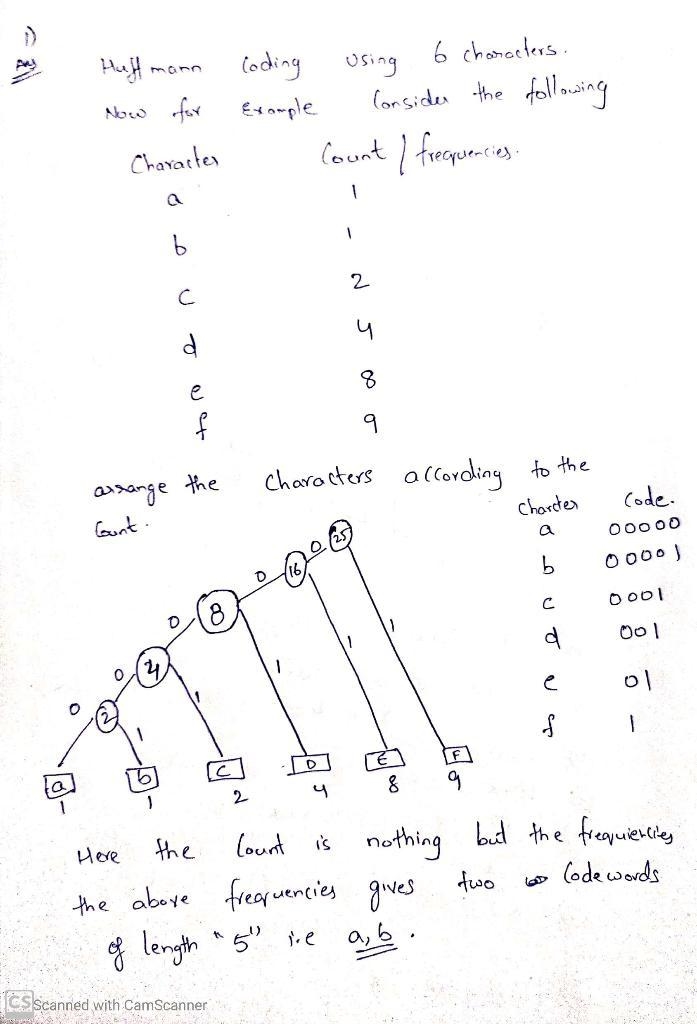 1)
Ans Huffmann Coding using 6 characters.
Now for Example Consider the following
Character Count / frequencies.
a 1
b 1
c 2
d 4
e 8
f 9
arrange the Characters according to the
Count.
Charcter Code.
a 00000
b 00001
c 0001
d 001
e 01
f 1
25
0
16
0 1
8
0 1
4
0 1
2
0 1
1
a b C D E F
1 1 2 4 8 9
Here the Count is nothing but the frequiencies
the above frequencies gives two Codewords
of length "5" i.e a,b.
CS Scanned with CamScanner